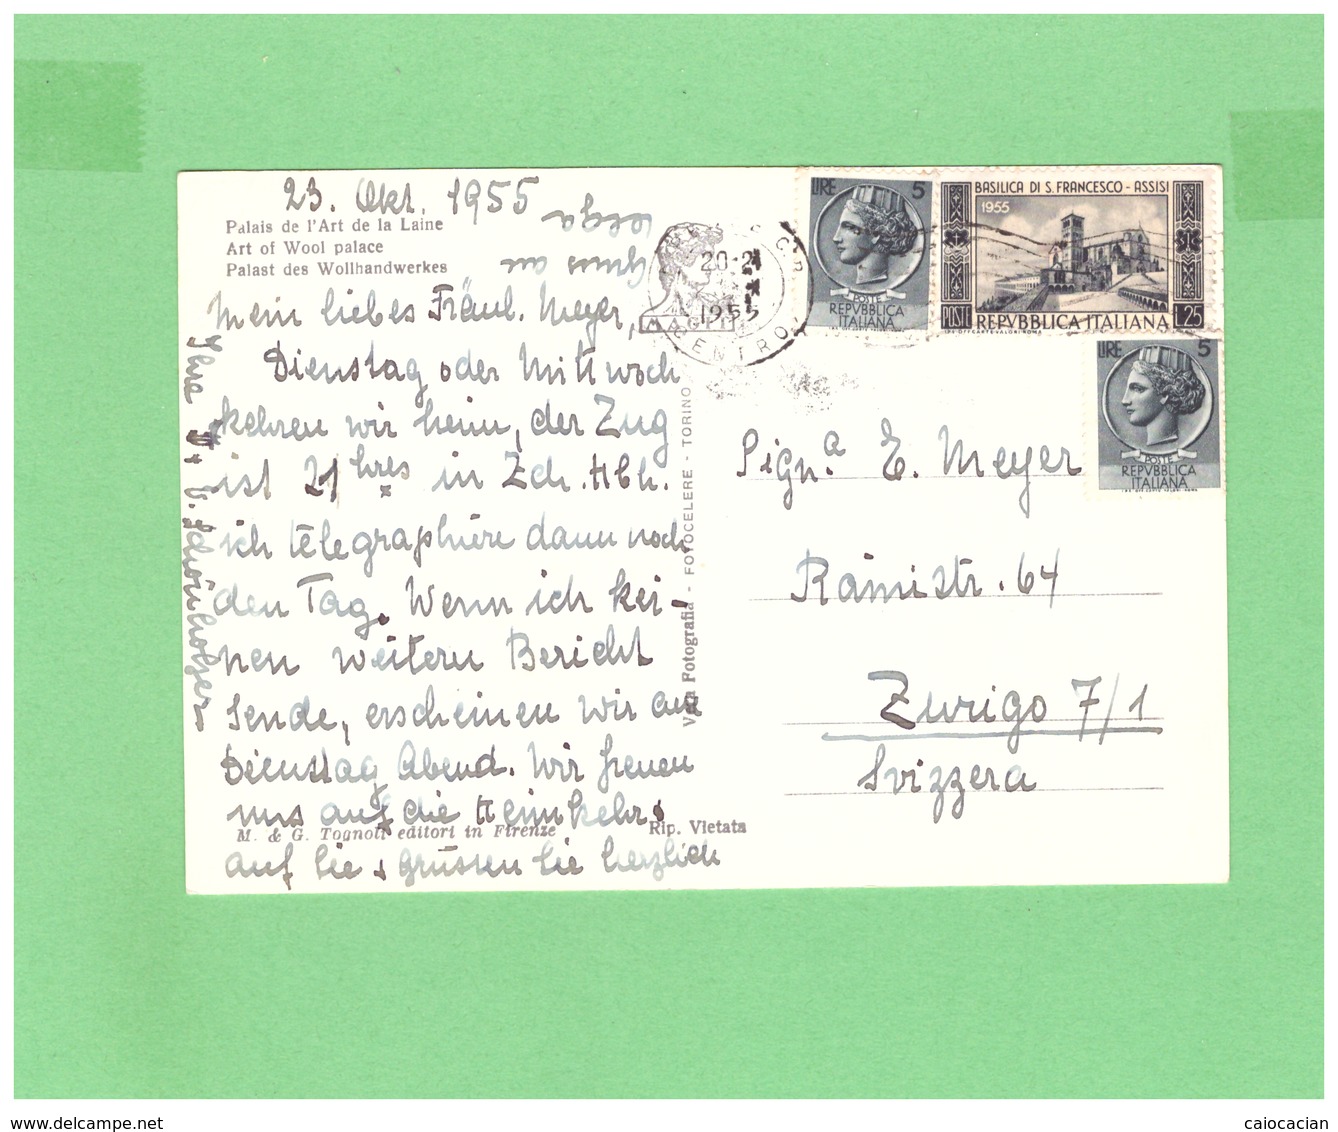 23. Okt. 1955
Palais de l'Art de la Laine
Art of Wool palace
Palast des Wollhandwerkes
Mein liebes Fräul. Meyer,
Dienstag oder Mittwoch
kehren wir heim, der Zug
ist 21 hres in Zch. Hbh.
ich telegraphiere dann noch
den Tag. Wenn ich kei-
nen weitern Bericht
sende, erscheinen wir am
Dienstag Abend. Wir freuen
uns auf die Heimkehr,
M. & G. Tognoli editori in Firenze
Rip. Vietata
auf Sie & grüssen Sie herzlich
Ihre
Schönholzer
Gruss an
Vera Fotografia - FOTOCELERE - TORINO
20-21
1955
CENTRO
LIRE 5
POSTE
REPVBBLICA
ITALIANA
BASILICA DI S. FRANCESCO - ASSISI
1955
POSTE REPVBBLICA ITALIANA L.25
LIRE 5
POSTE
REPVBBLICA
ITALIANA
Sign.a E. Meyer
Rämistr. 64
Zurigo 7/1
Svizzera
www.delcampe.net
caiocacian